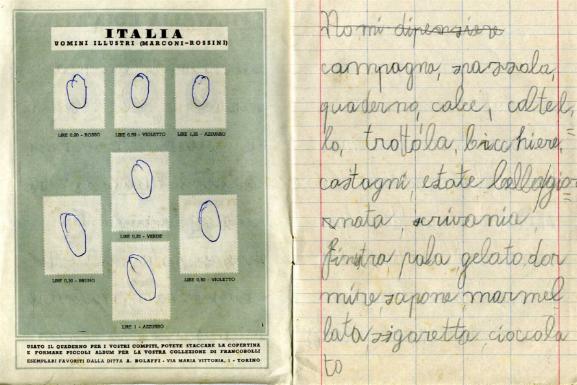 ITALIA
UOMINI ILLUSTRI (MARCONI-ROSSINI)
LIRE 0,20 - ROSSO
LIRE 0,50 - VIOLETTO
LIRE 1,25 - AZZURRO
LIRE 0,25 - VERDE
LIRE 0,10 - BRUNO
LIRE 0,50 - VIOLETTO
LIRE 1 - AZZURRO
USATO IL QUADERNO PER I VOSTRI COMPITI, POTETE STACCARE LA COPERTINA
E FORMARE PICCOLI ALBUM PER LA VOSTRA COLLEZIONE DI FRANCOBOLLI
ESEMPLARI FAVORITI DALLA DITTA A. BOLAFFI - VIA MARIA VITTORIA, 1 - TORINO
No mi di pensiere
campagna, spazzola,
quaderno, calce, coltel=
lo, trottola, bicchiere,
castagni, estate
rnata, scrivanie,
finstra pala gelato, dor
mire, sapone, marmel
lata sigaretta, cioccola
to